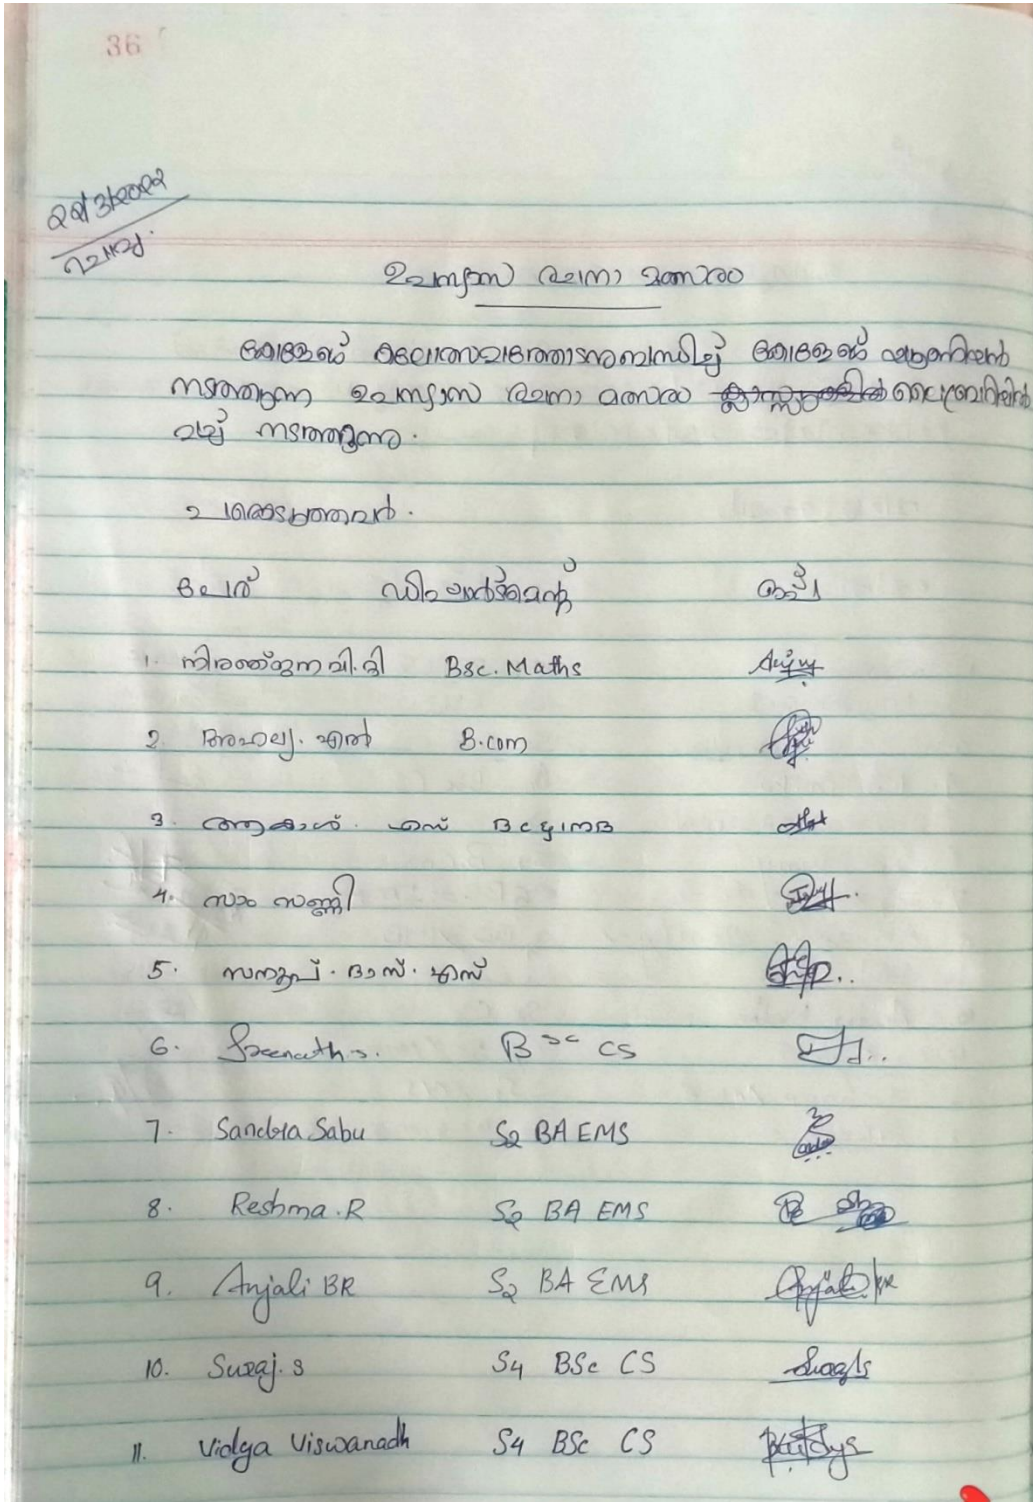 36
22/3/2022
ചൊവ്വ.
ഉപന്യാസ രചനാ മത്സരം
കോളേജ് കലോത്സവത്തോടനുബന്ധിച്ച് കോളേജ് യൂണിയൻ
നടത്തുന്ന ഉപന്യാസ രചനാ മത്സരം ലൈബ്രറിയിൽ
വച്ച് നടത്തുന്നു.
പങ്കെടുത്തവർ.
പേര് ഡിപ്പാർട്ട്മെന്റ് ഒപ്പ്
1. നിരഞ്ജന വി.വി Bsc. Maths
2. അഹല്യ. എൽ B.com
3. ആകാശ്. എസ്
4. സാം സണ്ണി
5. സനൂപ്. ദാസ്. എസ്
6. Sreenath.s. BSc CS
7. Sandra Sabu S2 BA EMS
8. Reshma.R S2 BA EMS
9. Anjali BR S2 BA EMS Anjali BR
10. Suraj.S S4 BSc CS
11. Vidya Viswanadh S4 BSc CS